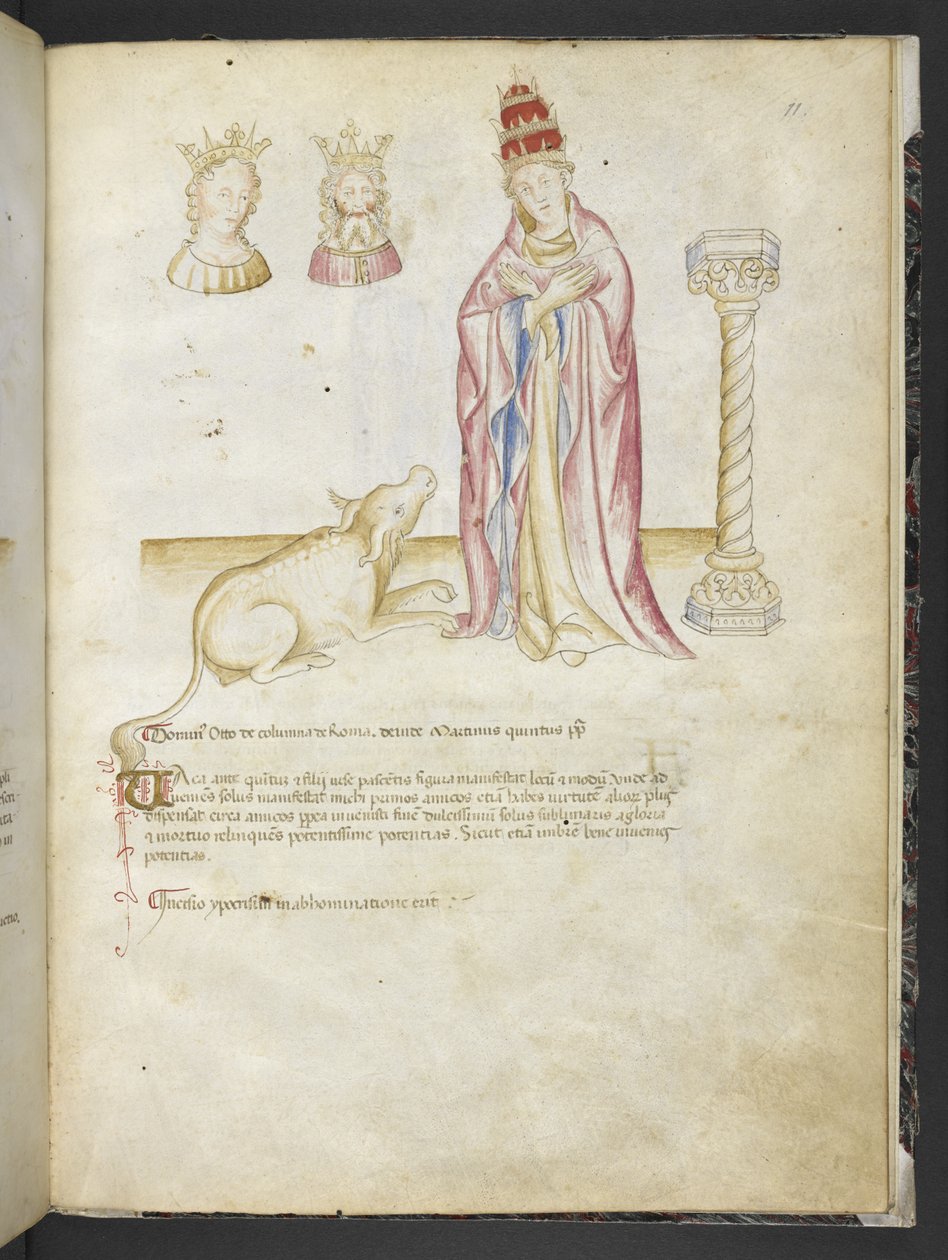 11.
Domin9 Otto de columna de Roma. deinde Martinus quintus pp
Vaca ante quintus et filij urse pascentis figura manifestat locū et modū. Vnde ad
ueniēs solus manifestat michi primos amicos etiā habes virtutē alior plus
dispensat circa amicos pprea inuenisti finē dulcissimū solus sublimaris a gloria
et mortuo relinquēs potentissime potentias. Sicut etiā imbrē bene inueniēs
potentias.
Incisio ypocrisim in abhominatione erit